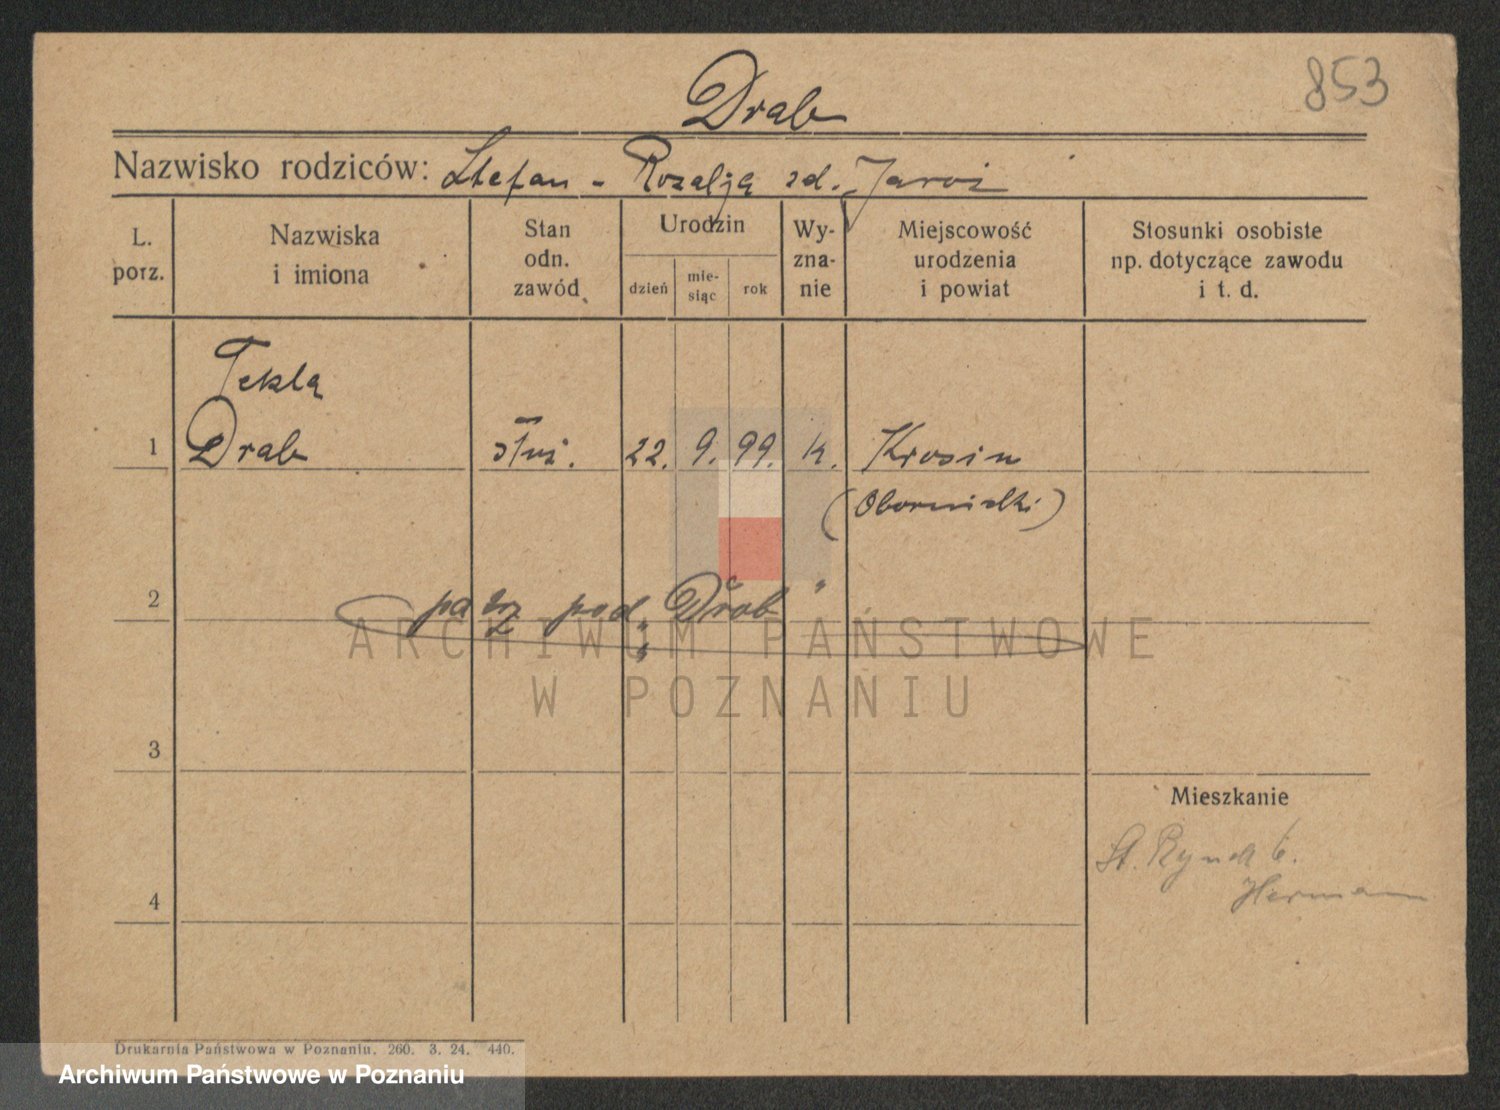 853
Drab
Nazwisko rodziców: Stefan - Rozalja zd. Jaroż
L. porz.
Nazwiska i imiona
Stan odn. zawód
Urodzin
dzień
mie-
siąc
rok
Wy-
zna-
nie
Miejscowość
urodzenia
i powiat
Stosunki osobiste
np. dotyczące zawodu
i t. d.
Tekla
1 Drab służ. 22. 9. 99. k. Krosin
(Obornicki)
2 patrz pod „Drab"
ARCHIWUM PAŃSTWOWE
W POZNANIU
3
Mieszkanie
St. Rynek 6.
Hermann
4
Drukarnia Państwowa w Poznaniu. 260. 3. 24. 440.
Archiwum Państwowe w Poznaniu